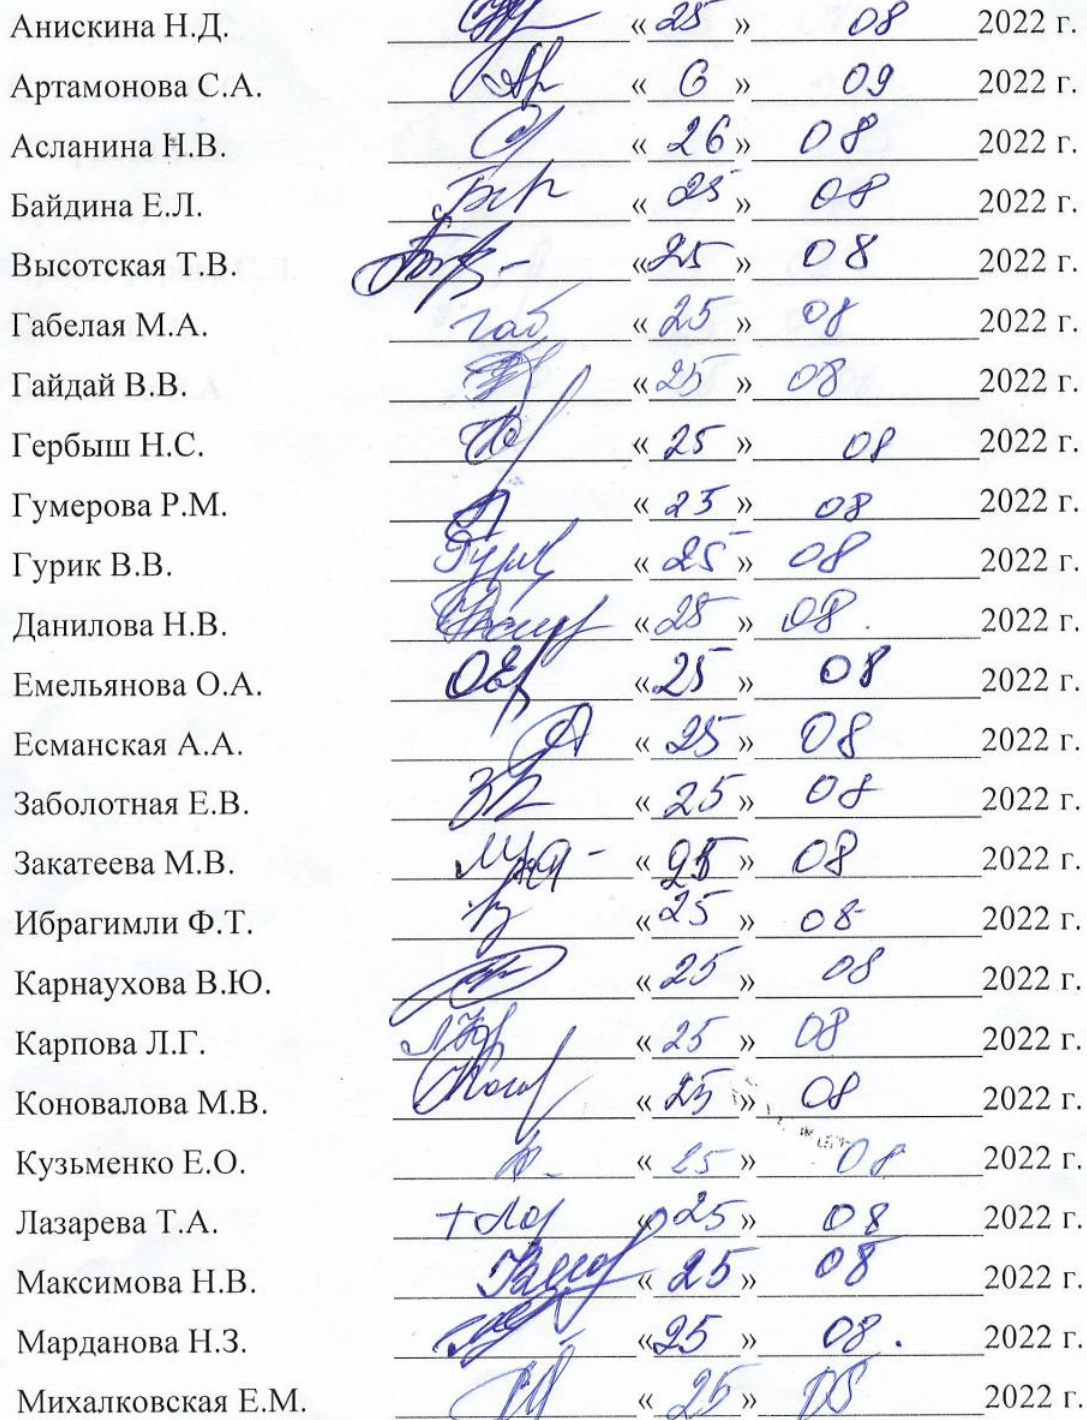 Анискина Н.Д. «25» 08 2022 г.
Артамонова С.А. «6» 09 2022 г.
Асланина Н.В. «26» 08 2022 г.
Байдина Е.Л. «25» 08 2022 г.
Высотская Т.В. «25» 08 2022 г.
Габелая М.А. Габ «25» 08 2022 г.
Гайдай В.В. «25» 08 2022 г.
Гербыш Н.С. «25» 08 2022 г.
Гумерова Р.М. «25» 08 2022 г.
Гурик В.В. «25» 08 2022 г.
Данилова Н.В. «25» 08. 2022 г.
Емельянова О.А. «25» 08 2022 г.
Есманская А.А. «25» 08 2022 г.
Заболотная Е.В. «25» 08 2022 г.
Закатеева М.В. «25» 08 2022 г.
Ибрагимли Ф.Т. «25» 08 2022 г.
Карнаухова В.Ю. «25» 08 2022 г.
Карпова Л.Г. «25» 08 2022 г.
Коновалова М.В. «25» 08 2022 г.
Кузьменко Е.О. «25» 08 2022 г.
Лазарева Т.А. «25» 08 2022 г.
Максимова Н.В. «25» 08 2022 г.
Марданова Н.З. «25» 08. 2022 г.
Михалковская Е.М. «25» 08 2022 г.